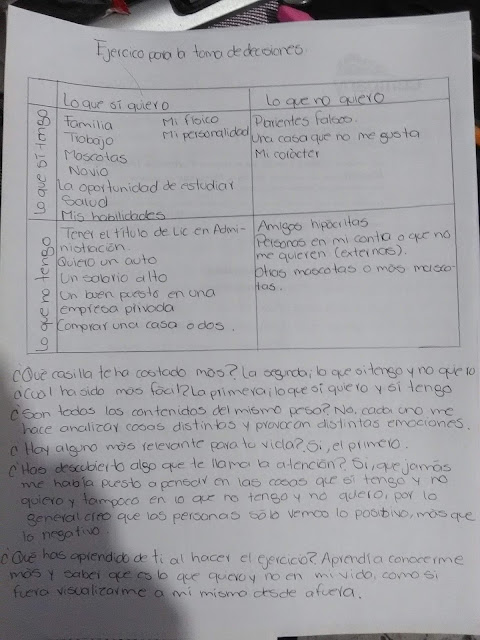 Ejercico para la toma de decisiones.
Lo que sí quiero
Lo que no quiero
Lo que sí tengo
Familia
Mi físico
Trabajo
Mi personalidad
Mascotas
Novio
La oportunidad de estudiar
Salud
Mis habilidades
Parientes falsos.
Una casa que no me gusta
Mi carácter
Lo que no tengo
Tener el título de Lic en Admi-
nistración.
Quiero un auto
Un salario alto
Un buen puesto en una
empresa privada
Comprar una casa o dos.
Amigos hipócritas
Personas en mi contra o que no
me quieren (externos).
Otras mascotas o más masco-
tas.
¿Qué casilla te ha costado más? La segunda; lo que si tengo y no quiero
¿Cuál ha sido más fácil? La primera; lo que sí quiero y sí tengo
¿Son todos los contenidos del mismo peso? No, cada uno me
hace analizar cosas distintas y provocan distintas emociones.
¿Hay alguno más relevante para tu vida? Si, el primero.
¿Has descubierto algo que te llama la atención? Si, que jamás
me había puesto a pensar en las cosas que si tengo y no
quiero y tampoco en lo que no tengo y no quiero, por lo
general creo que las personas sólo vemos lo positivo, más que
lo negativo
¿Qué has aprendido de ti al hacer el ejercicio? Aprendí a conocerme
más y saber que es lo que quero y no en mi vida, como si
fuera visualizarme a mi mismo desde afuera.